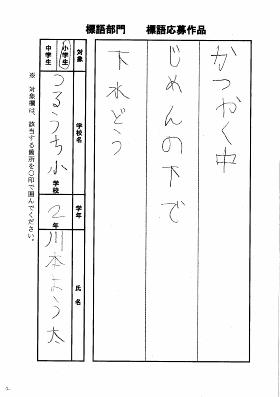 標語部門 標語応募作品
かつやく中
じめんの下で
下水どう
対象 小学生 中学生
学校名 つるうち小学校
学年 2年
氏名 川本よう太
※ 対象欄は、該当する箇所を〇印で囲んでください。
2